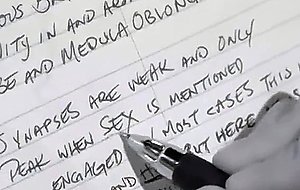 OUS BR
ITY IN AND AR
BE AND MEDULA OBLONG
SYNAPSES ARE WEAK AND ONLY
PEAK WHEN SEX IS MENTIONED
ENGAGED MOST CASES THIS
AND BUT HERE